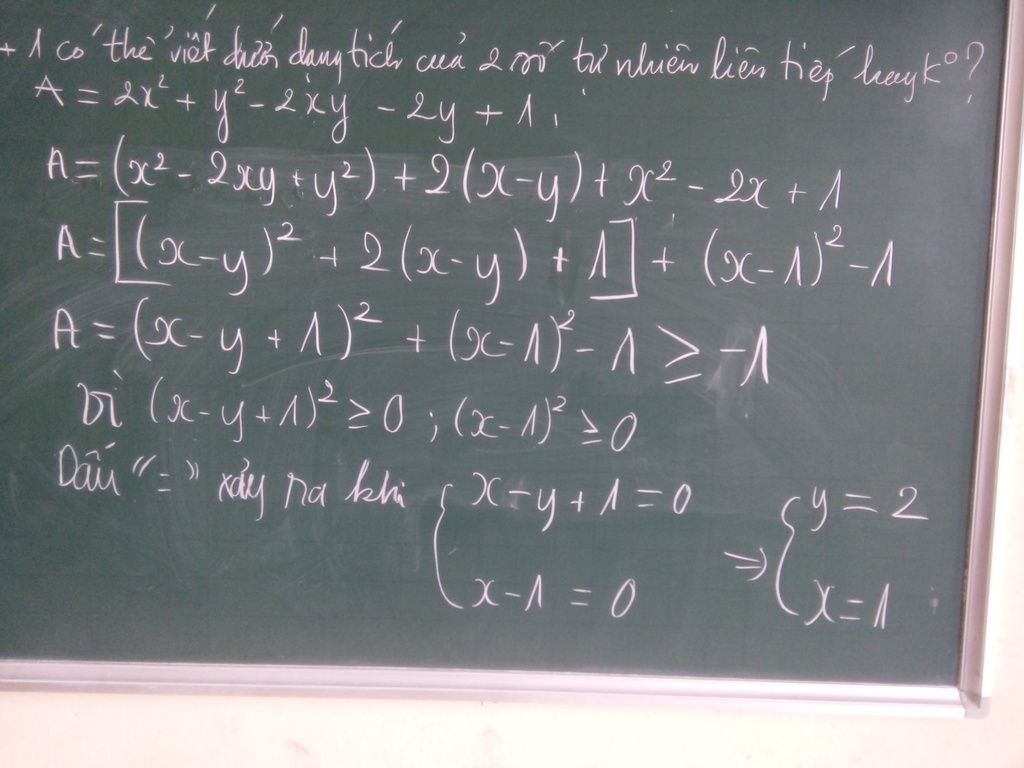 + 1 có thể viết dưới dạng tích của 2 số tự nhiên liên tiếp hay k°?
A = 2x² + y² - 2xy - 2y + 1.
A = (x² - 2xy + y²) + 2(x - y) + x² - 2x + 1
A = [(x - y)² + 2(x - y) + 1] + (x - 1)² - 1
A = (x - y + 1)² + (x - 1)² - 1 ≥ -1
Vì (x - y + 1)² ≥ 0 ; (x - 1)² ≥ 0
Dấu "=" xảy ra khi { x - y + 1 = 0 ⇒ { y = 2
x - 1 = 0 x = 1